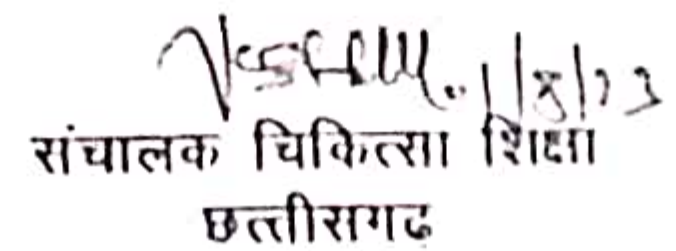 1/8/23
संचालक चिकित्सा शिक्षा
छत्तीसगढ